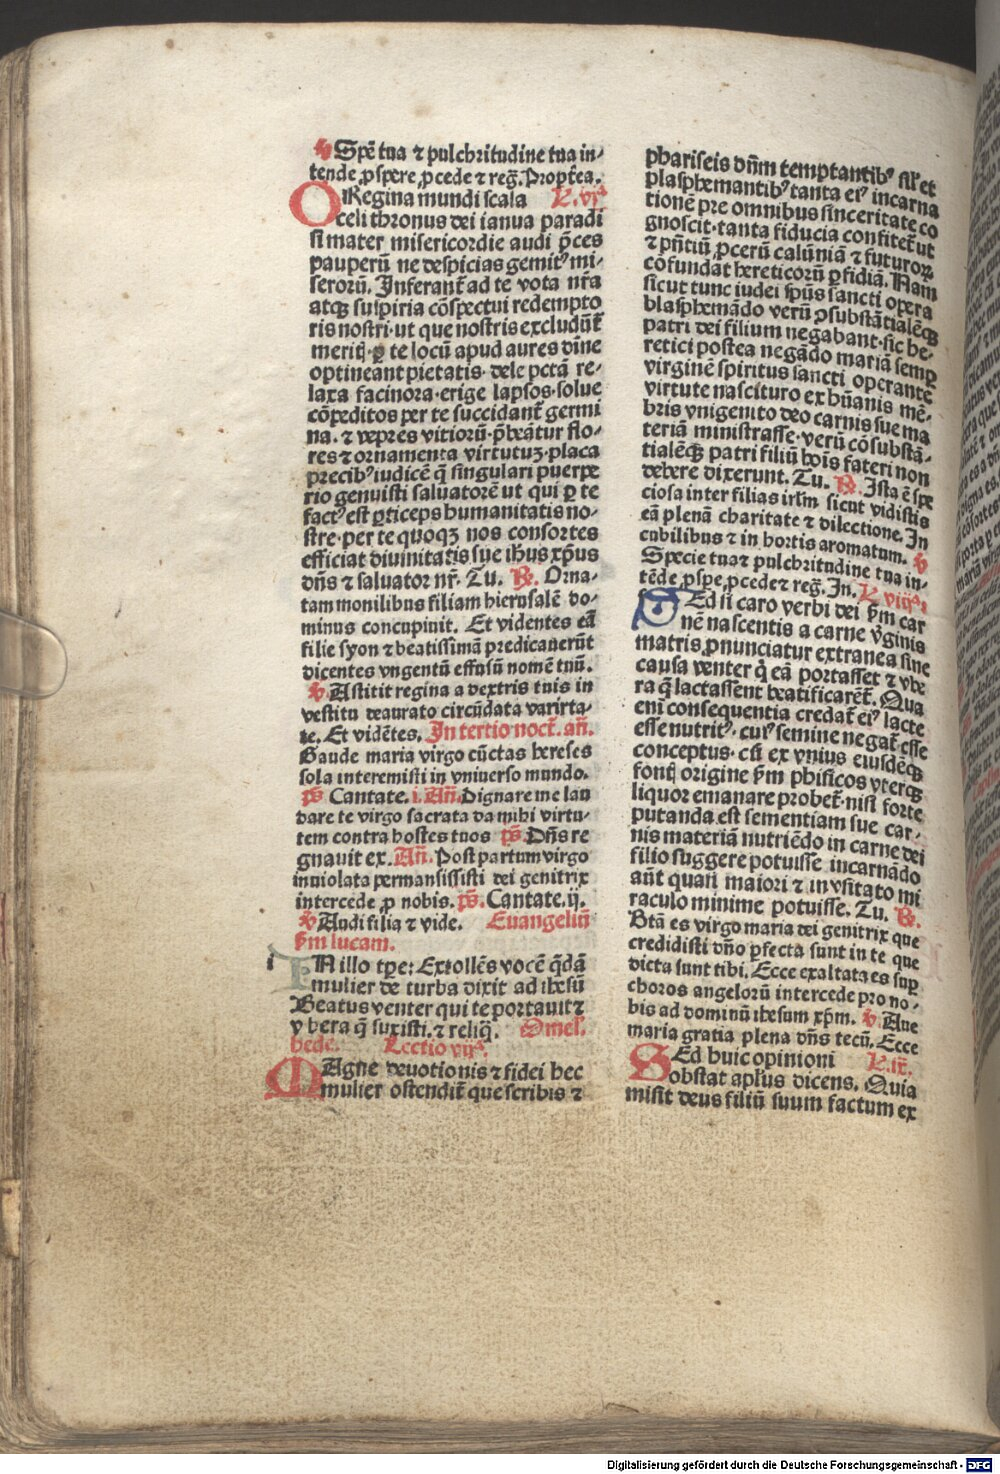 ℣ Speē tua ⁊ pulchritudine tua in⸗
tende ꝓspere ꝓcede ⁊ reg̃. Propt̃ea.
O Regina mundi scala L. vjª
celi thronus dei ianua paradi
si mater misericordie audi p̃ces
pauperū ne despicias gemitꝰ mi⸗
serorū. Inferant̃ ad te vota nr̃a
atqꝫ suspiria cōspectui redempto
ris nostri·ut que nostris excludūt̃
meritꝭ·ꝑ te locū apud aures diīe
optineant pietatis· dele pctā re⸗
laxa facinora·erige lapsos·solue
cōpeditos per te succidant̃ germi
na. ⁊ vepres vitiorū·p̃beātur flo⸗
res ⁊ ornamenta virtutuꝫ·placa
precibꝰ iudicē q̃ singulari puerpe
rio genuisti saluatorē ut qui ꝑ te
factꝰ est ꝑticeps humanitatis no⸗
stre·per te quoqꝫ nos consortes
efficiat diuinitatis sue ih̃us xp̃us
dn̄s ⁊ saluator nr̃. Tu. ℟. Orna⸗
tam monilibus filiam hierusalē do⸗
minus concupiuit. Et videntes eā
filie syon ⁊ beatissimā predicauerūt
dicentes vngentū effusū nomē tuū.
℣. Astitit regina a dextris tuis in
vestitu deaurato circūdata varirta⸗
te. Et vidētes. In tertio noct̃. añ.
Gaude maria virgo cūctas hereses
sola interemisti in vniuerso mundo.
p̃s Cantate. i. Añ. Dignare me lau
dare te virgo sacrata da mihi virtu⸗
tem contra hostes tuos p̃s. Dn̄s re
gnauit ex. Añ. Post partum virgo
inuiolata permansissisti dei genitrix
intercede ꝓ nobis. p̃s. Cantate. ij.
℣ Audi filia ⁊ vide. Euangeliū
ẜm lucam.
i N illo tp̄e: Extollēs vocē q̃dā
mulier de turba dixit ad ihesū
Beatus venter qui te portauit ⁊
vbera q̃ suxisti. ⁊ reliq̃. Omel'.
bede. Lectio vijª.
M Agne deuotionis ⁊ fidei hec
mulier ostendit̃ que scribis ⁊
phariseis dn̄m temptantibꝰ sil' et
plasphemantibꝰ tanta eiꝰ incarna
tionē pre omnibus sinceritate co
gnoscit·tanta fiducia confitet̃ ut
⁊ pn̄tiū ꝓcerū calūniā ⁊ futuroꝝ
cōfundat hereticorū ꝑfidiā. Nam
sicut tunc iudei sp̃us sancti opera
blasphemādo verū ꝓsubstātialēqꝫ
patri dei filium negabant·sic he⸗
retici postea negādo mariā semꝑ
virginē spiritus sancti operante
virtute nascituro ex hūanis mē⸗
bris vnigenito deo carnis sue ma
teriā ministrasse·verū cōsubstā⸗
tialēqꝫ patri filiū hoīs fateri non
debere dixerunt. Tu. ℟. Ista ē spe
ciosa inter filias irl̄m sicut vidistis
eā plenā charitate ⁊ dilectione. In
cubilibus ⁊ in hortis aromatum. ℣
Specie tua ⁊ pulchritudine tua in⸗
tēde ꝓspe ꝓcede ⁊ reg̃. In. L viijª.
S Ed si caro verbi dei ẜm car
nē nascentis a carne ṽginis
matris ꝓnunciatur extranea sine
causa venter q̃ eā portasset ⁊ vbe
ra q̃ lactassent beatificarēt̃. Qua
eni consequentia credat̃ eiꝰ lacte
esse nutritꝰ·cuiꝰ semine negat̃ esse
conceptus·cū ex vnius eiusdēqꝫ
fontꝭ origine ẜm phisicos vterqꝫ
liquor emanare probet̃·nisi forte
putanda est sementiam sue car⸗
nis materiā nutriēdo in carne dei
filio suggere potuisse incarnādo
aūt quasi maiori ⁊ inusitato mi
raculo minime potuisse. Tu. ℟.
Btā es virgo maria dei genitrix que
credidisti dn̄o ꝑfecta sunt in te que
dicta sunt tibi. Ecce exaltata es suꝑ
choros angelorū intercede pro no⸗
bis ad dominū ihesum xp̄m. ℣. Aue
maria gratia plena dn̄s tecū. Ecce
S Ed huic opinioni L. ix.
obstat apl̃us dicens. Quia
misit deus filiū suum factum ex
Digitalisierung gefördert durch die Deutsche Forschungsgemeinschaft - DFG